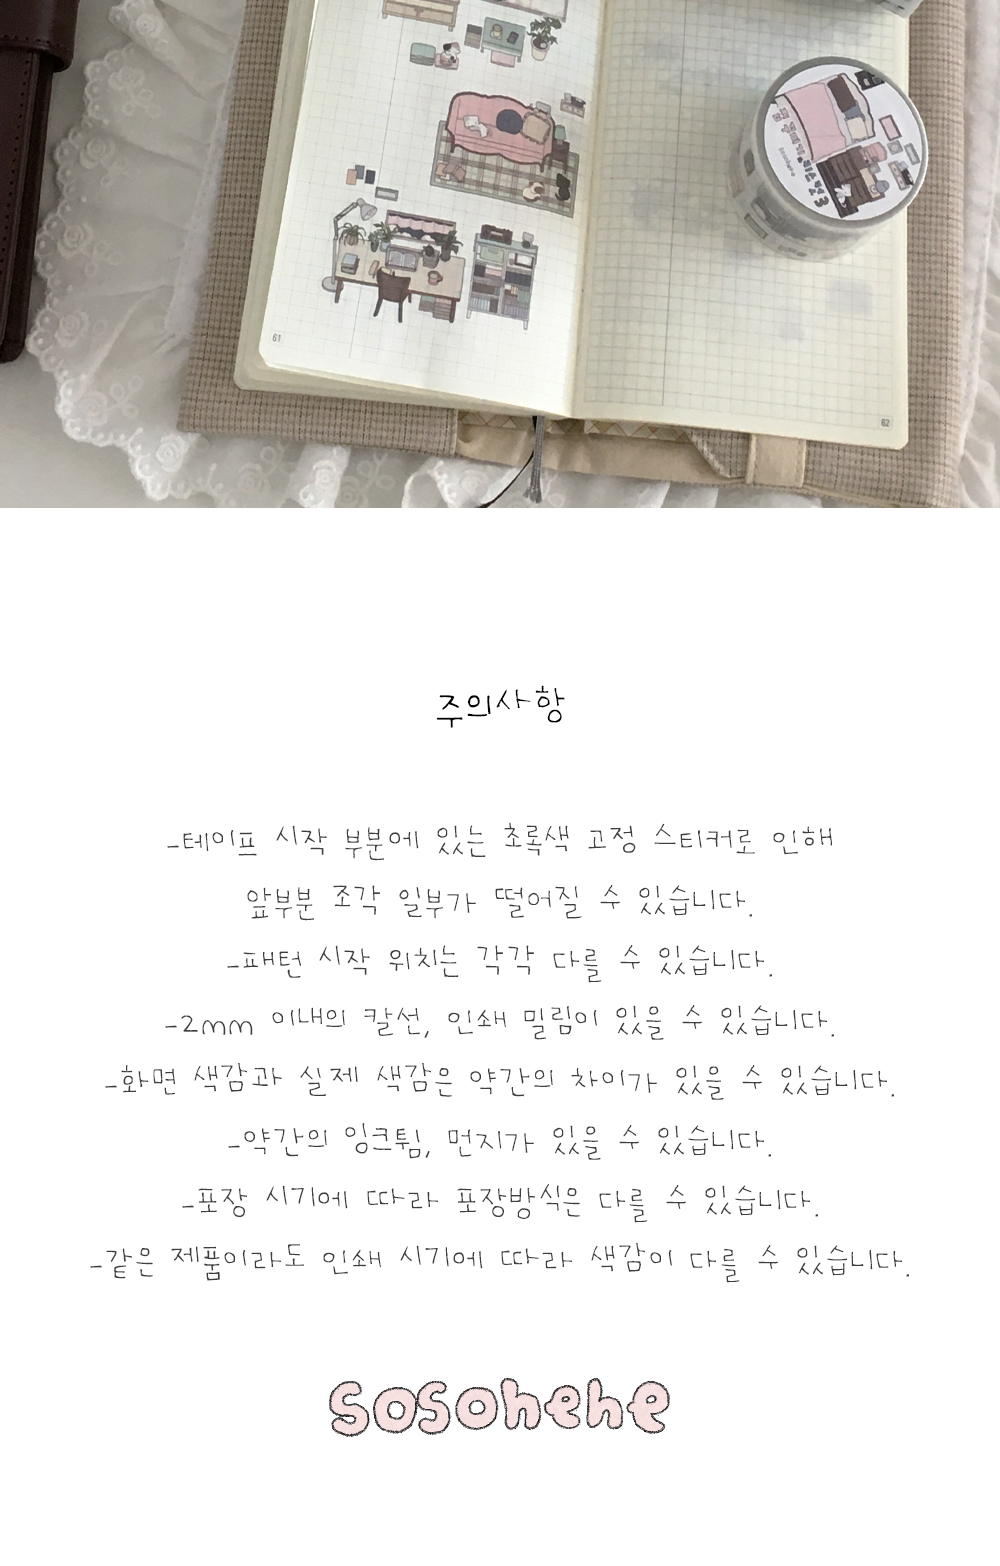 61
62
주의사항
-테이프 시작 부분에 있는 초록색 고정 스티커로 인해
앞부분 조각 일부가 떨어질 수 있습니다.
-패턴 시작 위치는 각각 다를 수 있습니다.
-2mm 이내의 칼선, 인쇄 밀림이 있을 수 있습니다.
-화면 색감과 실제 색감은 약간의 차이가 있을 수 있습니다.
-약간의 잉크튐, 먼지가 있을 수 있습니다.
-포장 시기에 따라 포장방식은 다를 수 있습니다.
-같은 제품이라도 인쇄 시기에 따라 색감이 다를 수 있습니다.
sosohehe